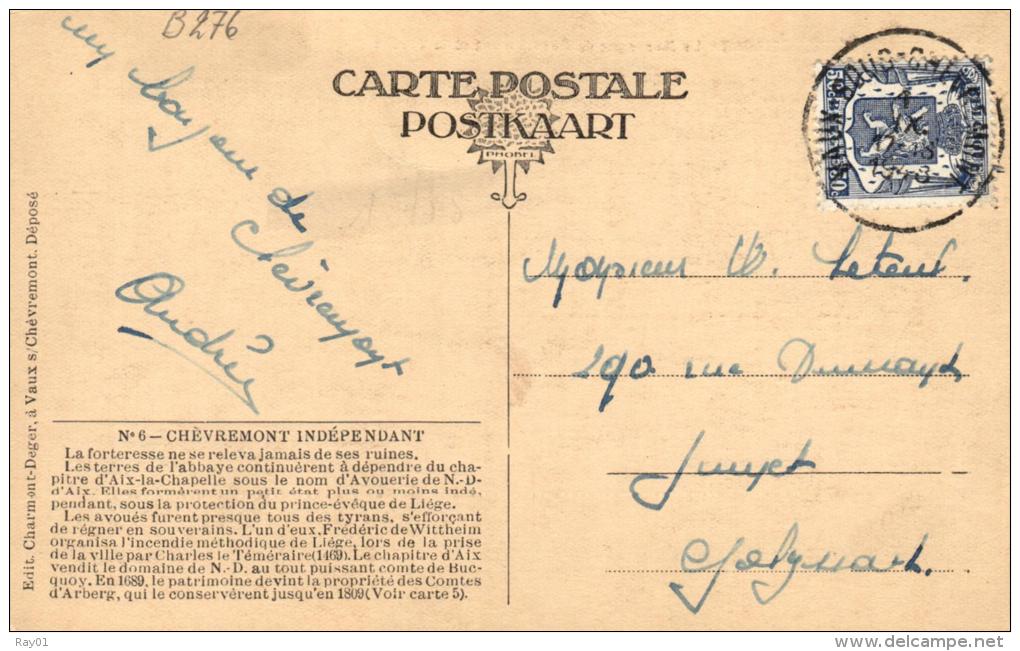 B276
CARTE POSTALE
POSTKAART
PHOBEL
de
Chèvremont
André
Monsieur
290 rue
Jumet
Edit. Charmont-Deger, à Vaux s/Chèvremont. Déposé
Nº 6 — CHÈVREMONT INDÉPENDANT
La forteresse ne se releva jamais de ses ruines.
Les terres de l'abbaye continuérent à dépendre du cha-
pitre d'Aix-la-Chapelle sous le nom d'Avouerie de N.-D-
d'Aix. Elles formèrent un petit état plus ou moins indé,
pendant, sous la protection du prince-évéque de Liége.
Les avoués furent presque tous des tyrans, s'efforçant
de régner en souverains. L'un d'eux, Frédéric de Wittheim
organisa l'incendie méthodique de Liége, lors de la prise
de la ville par Charles le Téméraire (1469). Le chapitre d'Aix
vendit le domaine de N.-D. au tout puissant comte de Buc-
quoy. En 1689, le patrimoine devint la propriété des Comtes
d'Arberg, qui le conservérent jusqu'en 1809 (Voir carte 5).
Ray01
www.delcampe.net